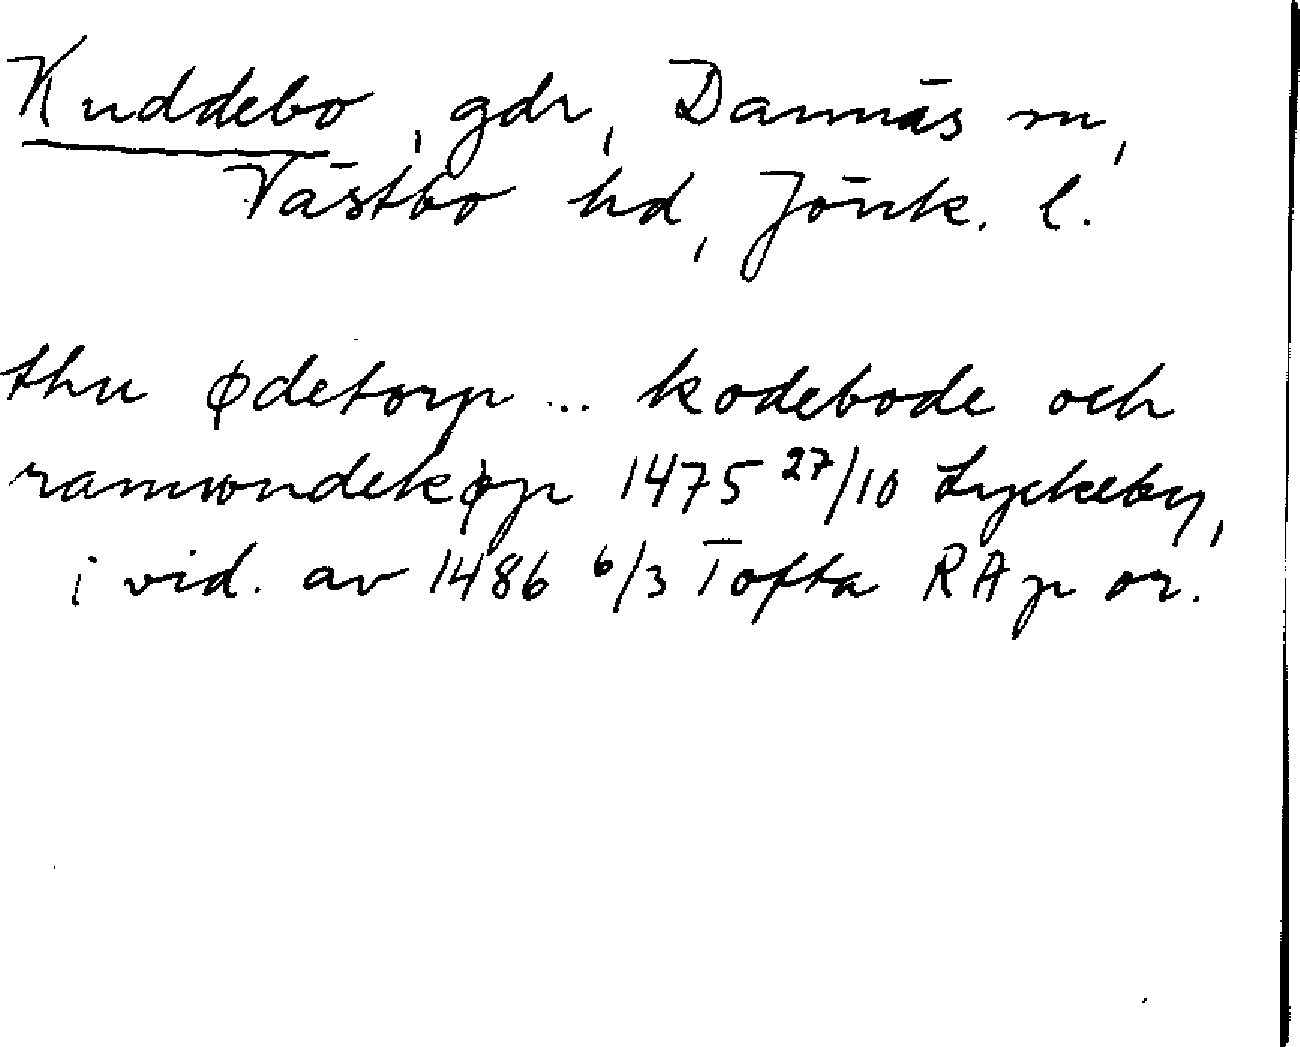 Kuddebo, gdr, Dannäs sn,
Västbo hd, Jönk. l.
thu ødetorp ... kodebode och
ramwndekøp 1475 27/10 Lyckeby,
i vid. av 1486 6/3 Tofta RAp or.